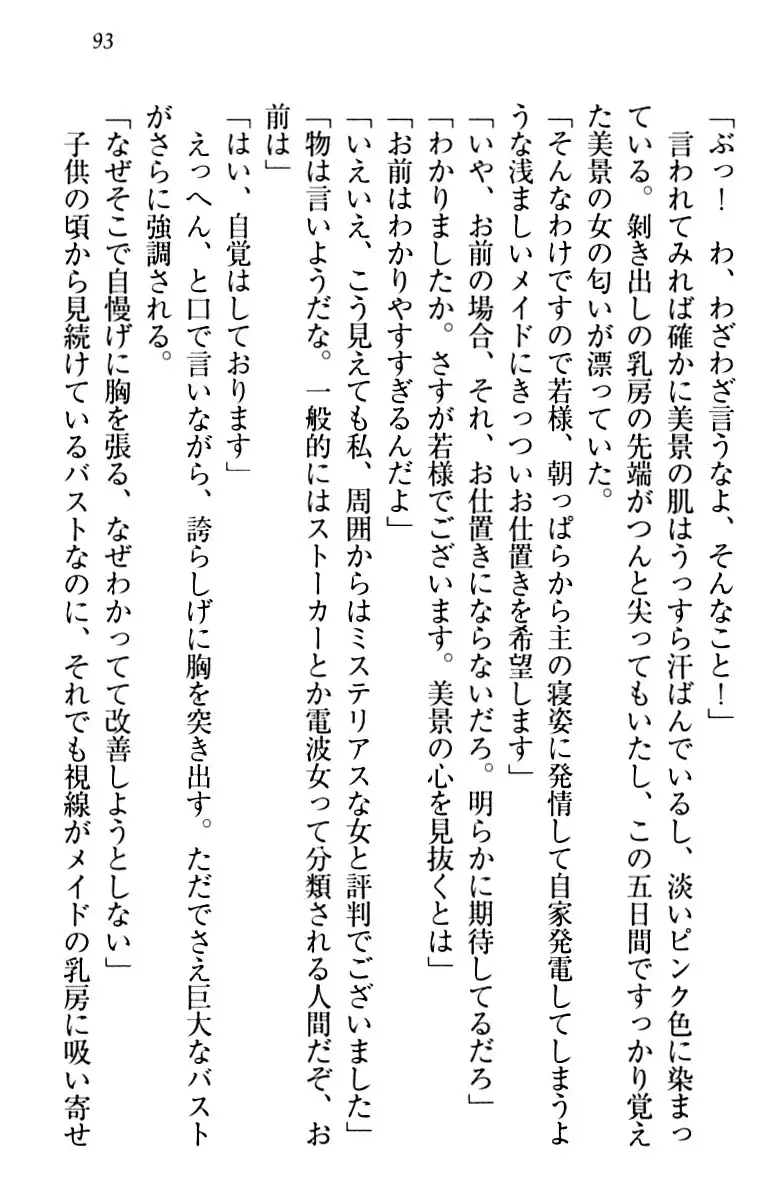 93
「ぶっ！　わ、わざわざ言うなよ、そんなこと！」
　言われてみれば確かに美景の肌はうっすら汗ばんでいるし、淡いピンク色に染まっ
ている。剝き出しの乳房の先端がつんと尖ってもいたし、この五日間ですっかり覚え
た美景の女の匂いが漂っていた。
「そんなわけですので若様、朝っぱらから主の寝姿に発情して自家発電してしまうよ
うな浅ましいメイドにきっついお仕置きを希望します」
「いや、お前の場合、それ、お仕置きにならないだろ。明らかに期待してるだろ」
「わかりましたか。さすが若様でございます。美景の心を見抜くとは」
「お前はわかりやすすぎるんだよ」
「いえいえ、こう見えても私、周囲からはミステリアスな女と評判でございました」
「物は言いようだな。一般的にはストーカーとか電波女って分類される人間だぞ、お
前は」
「はい、自覚はしております」
　えっへん、と口で言いながら、誇らしげに胸を突き出す。ただでさえ巨大なバスト
がさらに強調される。
「なぜそこで自慢げに胸を張る、なぜわかってて改善しようとしない」
　子供の頃から見続けているバストなのに、それでも視線がメイドの乳房に吸い寄せ